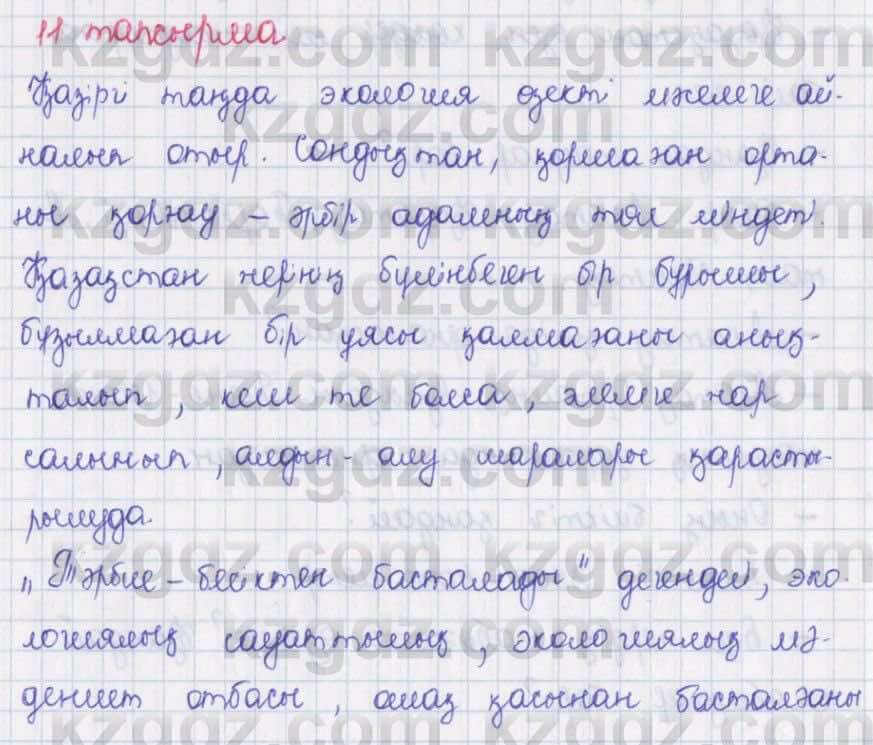 11 тапсырма
Қазіргі таңда экология өзекті мәселеге ай-
налып отыр. Сондықтан, қоршаған орта-
ны қорғау – әрбір адамның төл міндеті.
Қазақстан жерінің бүлінбеген бір бұрышы,
бұзылмаған бір ұясы қалмағаны анық-
талып, кеш те болса, әлемге жар
салынып, алдын-алу шаралары қарасты-
рылуда.
"Тәрбие – бесіктен басталады" дегендей, эко-
логиялық сауаттылық, экологиялық мә-
дениет отбасы, ошақ қасынан басталғаны